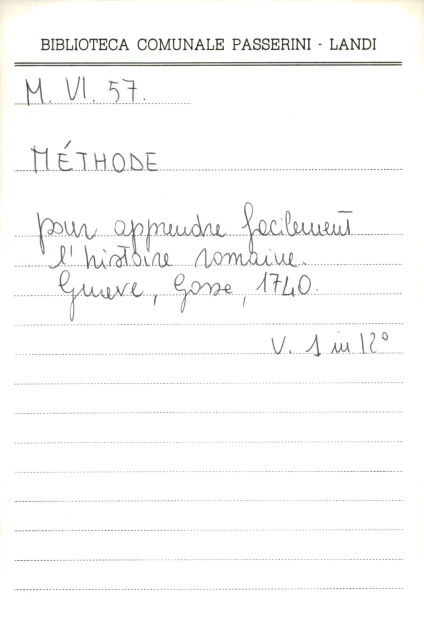 BIBLIOTECA COMUNALE PASSERINI - LANDI
M. VI. 57.
MÉTHODE
pour apprendre facilement
l'histoire romaine.
Geneve, Gosse, 1740.
V. 1 in 12°